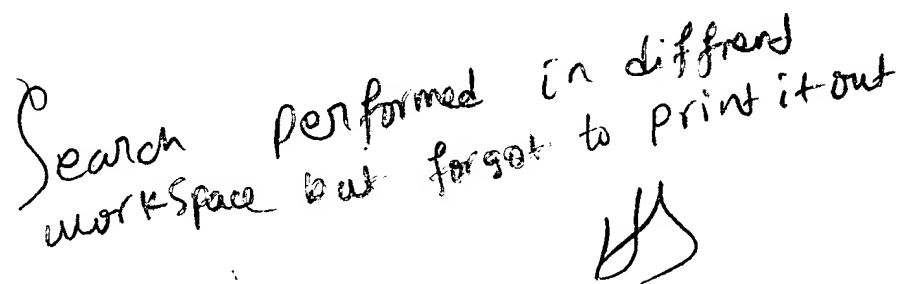 Search performed in diffrend
workSpace but forgot to print it out